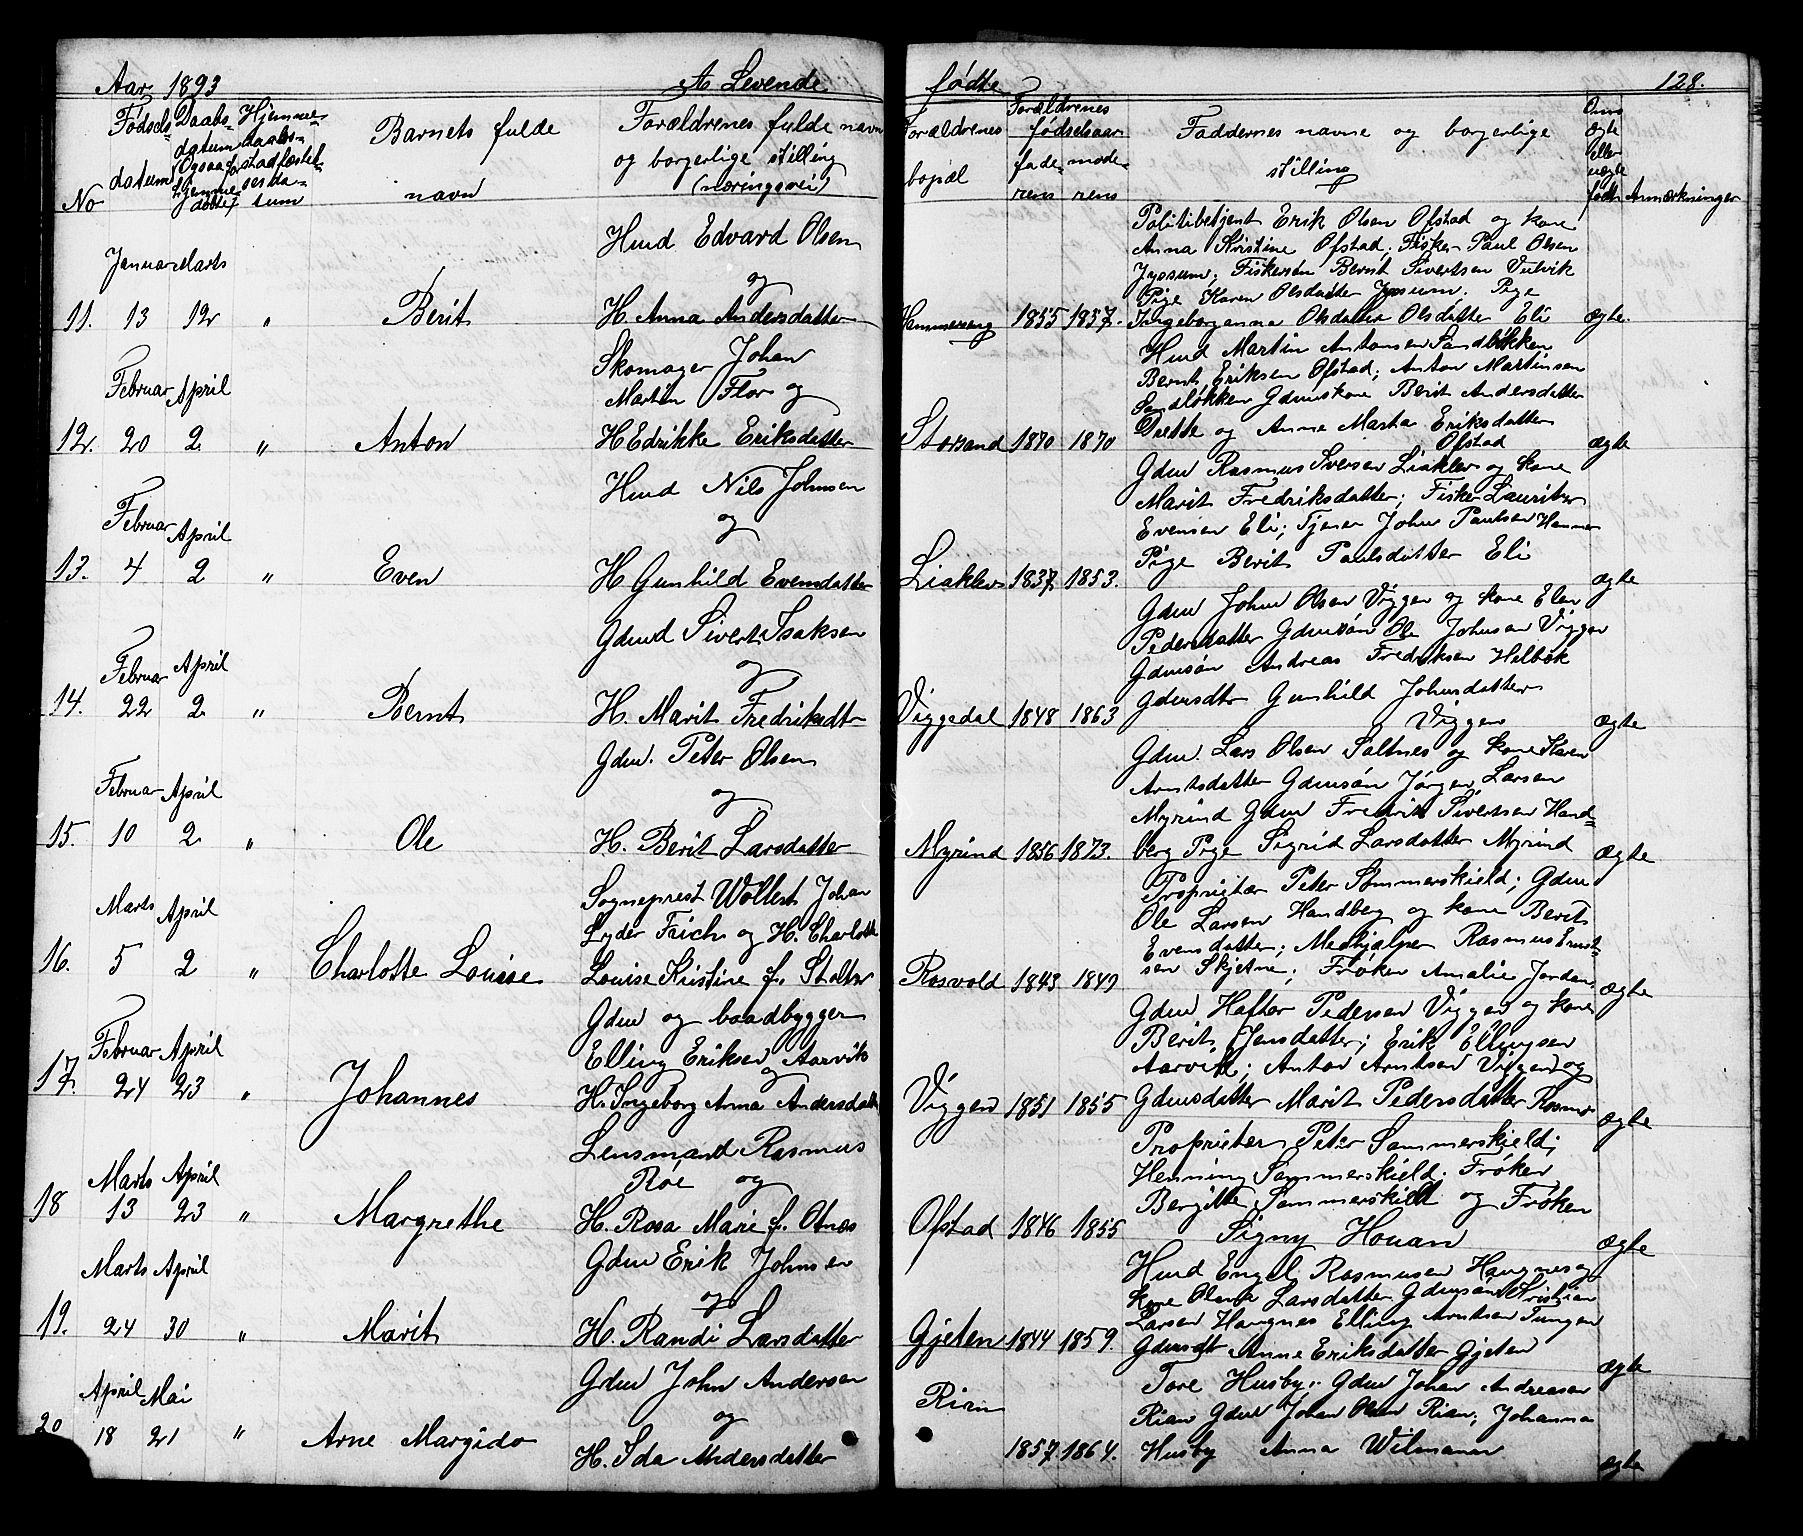 Aar 1893
A Levende
fødte
128.
No
Fødsels-
datum
Daabs-
datum
Hjemme-
daabs-
stadfæstel-
sesda-
tum
Barnets fulde
navn
Forældrenes fulde navn
og borgerlige stilling
(næringsvei)
Forældrenes
bopæl
Forældrenes
fødselsaar
fade-
rens
mode-
rens
Faddernes navne og borgerlige
stilling
Om
ægte
eller
uægte
født
Anmærkninger
11.
Januar
13
Marts
12
"
Berit
Hmd Edvard Olsen
og
H. Anna Andersdatter
Hammereng
1855
1857.
Politibetjent Erik Olsen Ofstad og kone
Anna Kristine Ofstad; Fisker Paul Olsen
Fiskersøn Bernt Sivertsen Vulvik
Pige Karen Olsdatter Pige
Ingeborganna Olsdatter Eli
ægte.
12.
Februar
20
April
2
"
Anton
Skomager Johan
Martin Flor og
H Edrikke Eriksdatter
Storsand
1870
1870
Hmd Martin Antonsen Sandløkken
Bernt Eriksen Ofstad; Anton Martinsen
Sandløkken Gdmskone Berit Andersdatter
og Anne Marta Eriksdatter
Ofstad
ægte
13.
Februar
4
April
2
"
Even
Hmd Nils Johnsen
og
H Gunhild Evensdatter
Liaklev
1837
1853.
Gdm Rasmus Iversen Liaklev og kone
Marit Fredriksdatter; Fisker Lauritz
Evensen Eli; Tjener John Paulsen Hammer
Pige Berit Paulsdatter Eli
ægte
14.
Februar
22
April
2
"
Bernt
Gdmd Sivert Isaksen
og
H. Marit Fredriksdtr
Viggedal
1848
1863
Gdm John Olsen Viggen og kone Elen
Pedersdatter Gdmsøn Ole Johnsen Viggen
Gdmsøn Andreas Fredriksen Helbæk
Gdmsdtr Gunhild Johnsdatter
Viggen
ægte
15.
Februar
10
April
2
"
Ole
Gdm. Peter Olsen
og
H. Berit Larsdatter
Myrind
1856
1873.
Gdm. Lars Olsen Saltnes og kone Karen
Arntsdatter Gdmsøn Jørgen Larsen
Myrind Gdm Fredrik Sivertsen Hand-
berg Pige Sigrid Larsdatter Myrind
ægte
16.
Marts
5
April
2
"
Charlotte Louise
Sogneprest Wollert Johan
Lyder Frich og H. Charlotte
Louise Kristine f. Stoltz
Rosvold
1843
1849
Proprietær Peter Sommerskield; Gdm
Ole Larsen Handberg og kone Berit
Evensdatter; Medhjælper Rasmus Ernst-
sen Skjetne; Frøken Amalie Jordan
ægte
17.
Februar
24
April
23
"
Johannes
Gdm og baadbygger
Elling Eriksen Aarvik
og
H. Ingeborg Anna Andersdatt
Viggen
1851
1855
Gdm Haftor Pedersen Viggen og kone
Berit Jensdatter; Erik Ellingsen
Aarvik; Anton Arntsen Viggen og
Gdmsdatter Marit Pedersdatter
ægte
18
Marts
13
April
23
"
Margrethe
Lensmand Rasmus
Roe og
H. Rosa Marie f. Otnes
Ofstad
1846
1855
Proprietær Peter Sommerskjeld;
Henning Sommerskield; Frøken
Bergitte Sommerskield og Frøken
Signy Houan
ægte
19.
Marts
24
April
30
"
Marit
Gdm Erik Johnsen
og
H. Randi Larsdatter
Gjeten
1844
1859.
Hmd Engel Rasmusen Haugnes og
kone Olava Larsdatter Gdmsøn Kristian
Larsen Haugnes Elling Arntsen Tungen
Gdmsdt Anne Eriksdatter Gjeten
ægte
20
April
18
Mai
21
"
Arne Margido
Gdm John Andersen
og
H. Ida Andersdatter
Rian
1857.
1864.
Tore Husby; Gdm Johan Andreasen
Rian Gdm Johan Olsen Rian; Johanna
Husby Anna Wilmann
ægte